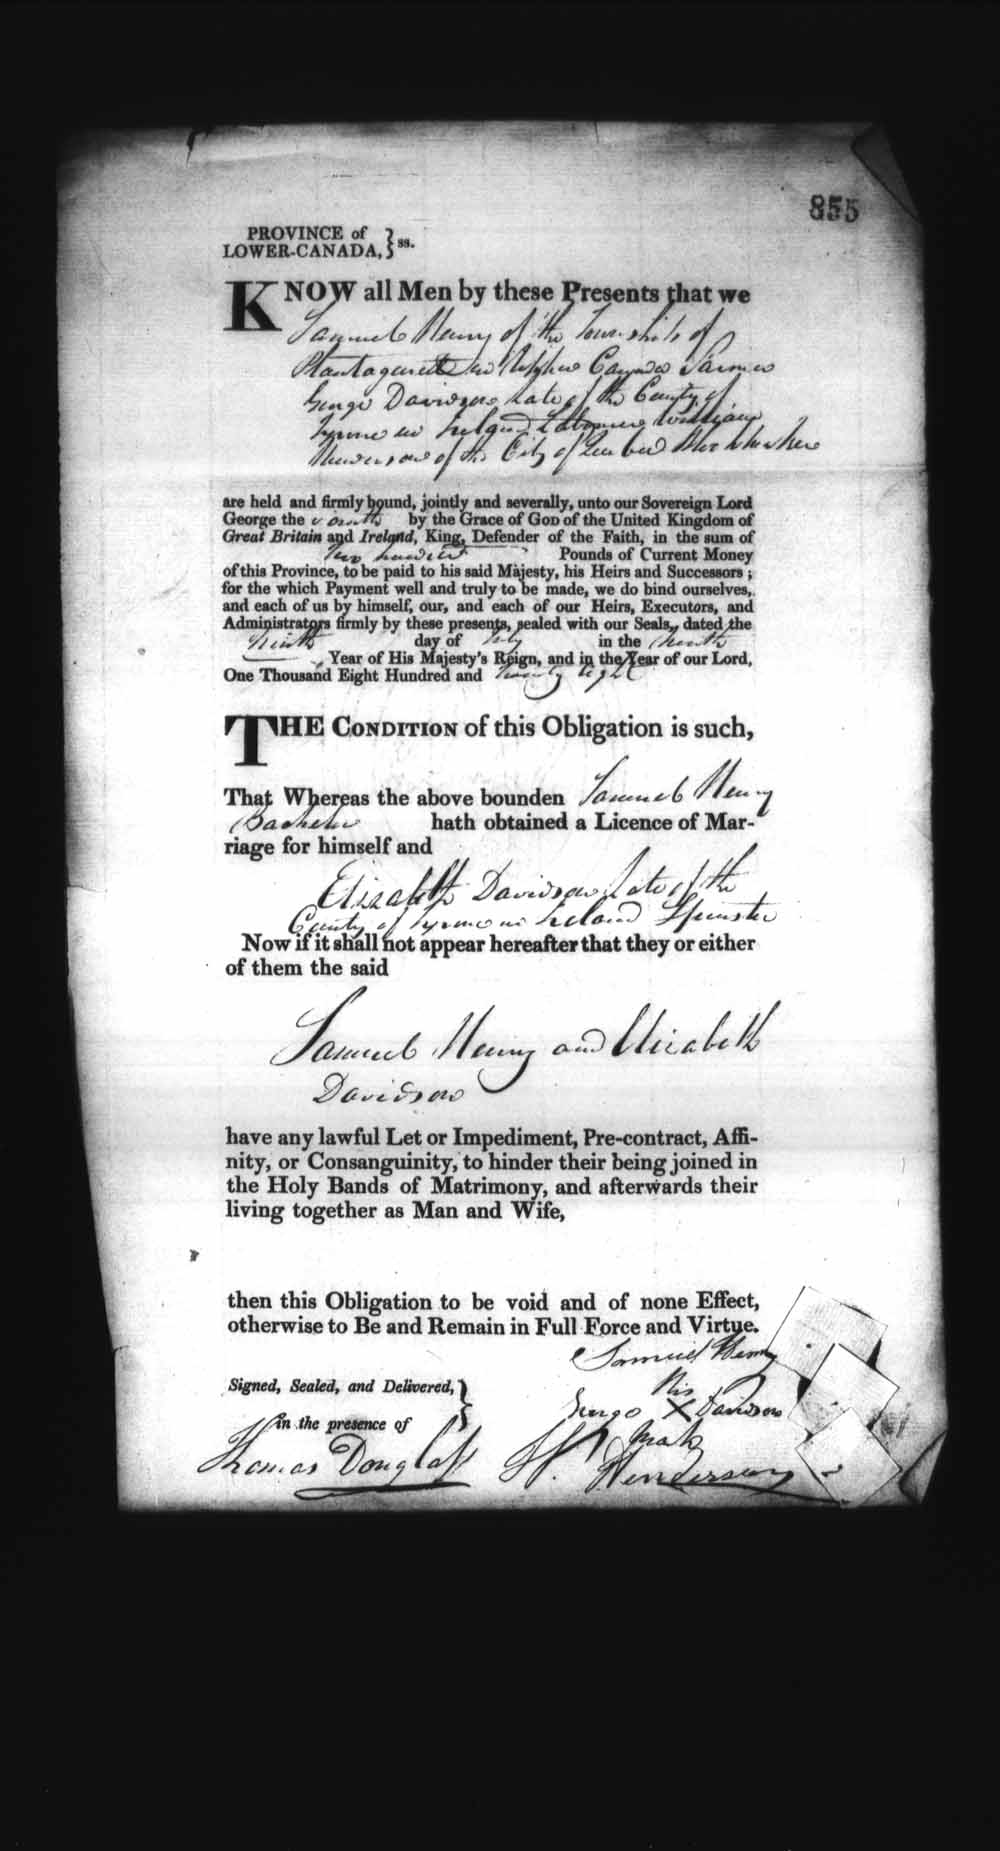 855
PROVINCE of
LOWER-CANADA, } ss.
KNOW all Men by these Presents that we
Samuel Henry of the Township of
Plantagenett in Upper Canada Farmer
George Davidson late of the County of
Tyrone in Ireland Labourer William
Henderson of the City of Quebec
are held and firmly bound, jointly and severally, unto our Sovereign Lord
George the Fourth by the Grace of GOD of the United Kingdom of
Great Britain and Ireland, King, Defender of the Faith, in the sum of
Two hundred Pounds of Current Money
of this Province, to be paid to his said Majesty, his Heirs and Successors ;
for the which Payment well and truly to be made, we do bind ourselves,
and each of us by himself, our, and each of our Heirs, Executors, and
Administrators firmly by these presents, sealed with our Seals, dated the
Ninth day of July in the Ninth
Year of His Majesty's Reign, and in the Year of our Lord,
One Thousand Eight Hundred and twenty eight
THE CONDITION of this Obligation is such,
That Whereas the above bounden Samuel Henry
Bachelor hath obtained a Licence of Mar-
riage for himself and
Elizabeth Davidson late of the
County of Tyrone in Ireland Spinster
Now if it shall not appear hereafter that they or either
of them the said
Samuel Henry and Elizabeth
Davidson
have any lawful Let or Impediment, Pre-contract, Affi-
nity, or Consanguinity, to hinder their being joined in
the Holy Bands of Matrimony, and afterwards their
living together as Man and Wife,
then this Obligation to be void and of none Effect,
otherwise to Be and Remain in Full Force and Virtue.
Samuel Henry
Signed, Sealed, and Delivered, }
in the presence of
his
George X Davidson
mark
Thomas Douglass
W. Henderson